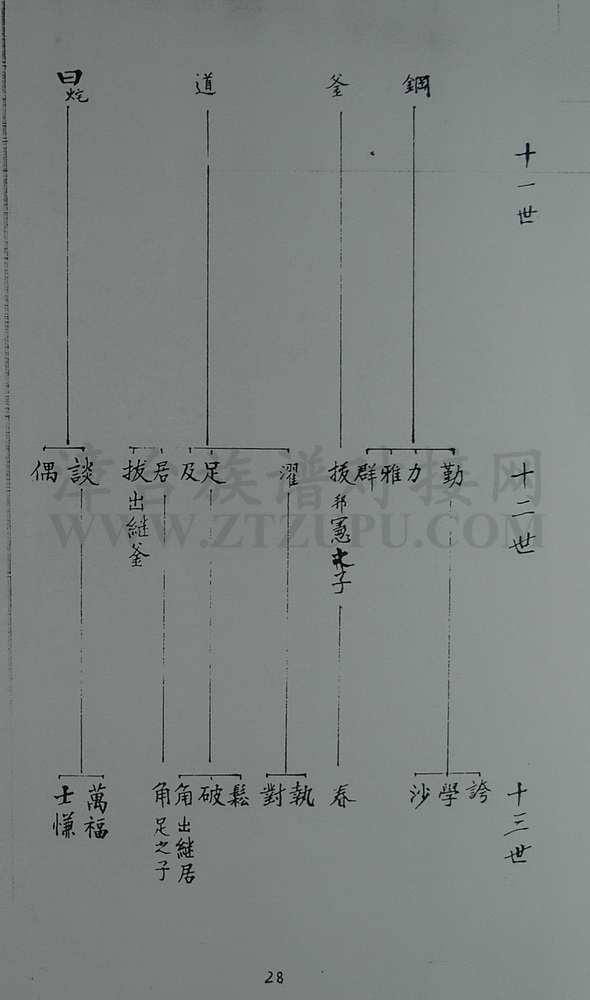 十一世
鋼
釜
道
十二世
勤
力
雅
群
拔 邦憲之子
濯
足
及
居
拔 出継釜
談
偶
十三世
誇
學
沙
春
執
對
鬆
破
角 出継居
角 足之子
萬福
士慊
漳台族谱对接网
WWW.ZTZUPU.COM
28